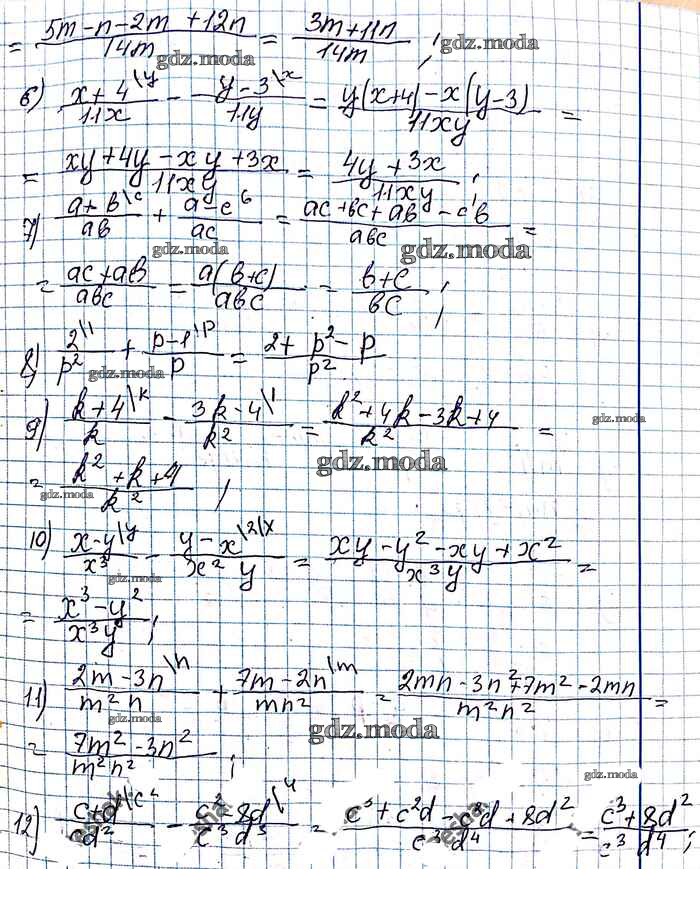 = (5m - n - 2m + 12n)/14m = (3m + 11n)/14m ;
gdz.moda
6) (x + 4 \y)/11x - (y - 3 \x)/11y = (y(x+4) - x(y-3))/11xy =
= (xy + 4y - xy + 3x)/11xy = (4y + 3x)/11xy ;
gdz.moda
7) (a + b \c)/ab + (a - c \b)/ac = (ac + bc + ab - cb)/abc =
gdz.moda gdz.moda
= (ac + ab)/abc = (a(b+c))/abc = (b+c)/bc ;
8) (2 \1)/p² + (p-1 \p)/p = (2 + p² - p)/p²
gdz.moda
9) (k + 4 \k)/k - (3k - 4 \1)/k² = (k² + 4k - 3k + 4)/k² =
gdz.moda
gdz.moda
= (k² + k + 4)/k² ;
gdz.moda
10) (x - y \y)/x³ - (y - x \2\x)/x² y = (xy - y² - xy + x²)/x³y =
gdz.moda
= (x³ - y²)/x³y ;
11) (2m - 3n \n)/m² n + (7m - 2n \m)/mn² = (2mn - 3n² + 7m² - 2mn)/m²n² =
gdz.moda
gdz.moda
= (7m² - 3n²)/m²n² ;
gdz.moda
12) (c + d \c²)/cd⁴ - (c² - 8d \d)/c³d³ = (c³ + c²d - c²d + 8d²)/c³d⁴ = (c³ + 8d²)/c³d⁴ ;